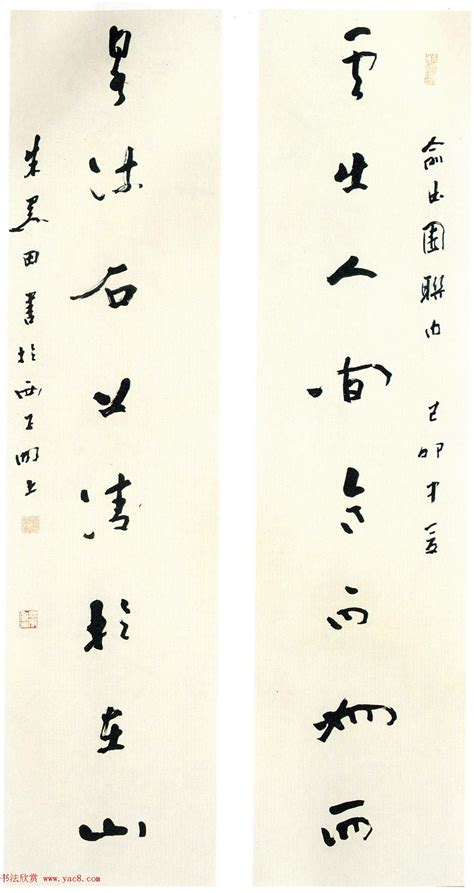 云出人間而為雨
俞曲園聯句 己卯中夏
泉流石上清於在山
朱關田書於西子湖上
书法欣赏 www.yac8.com